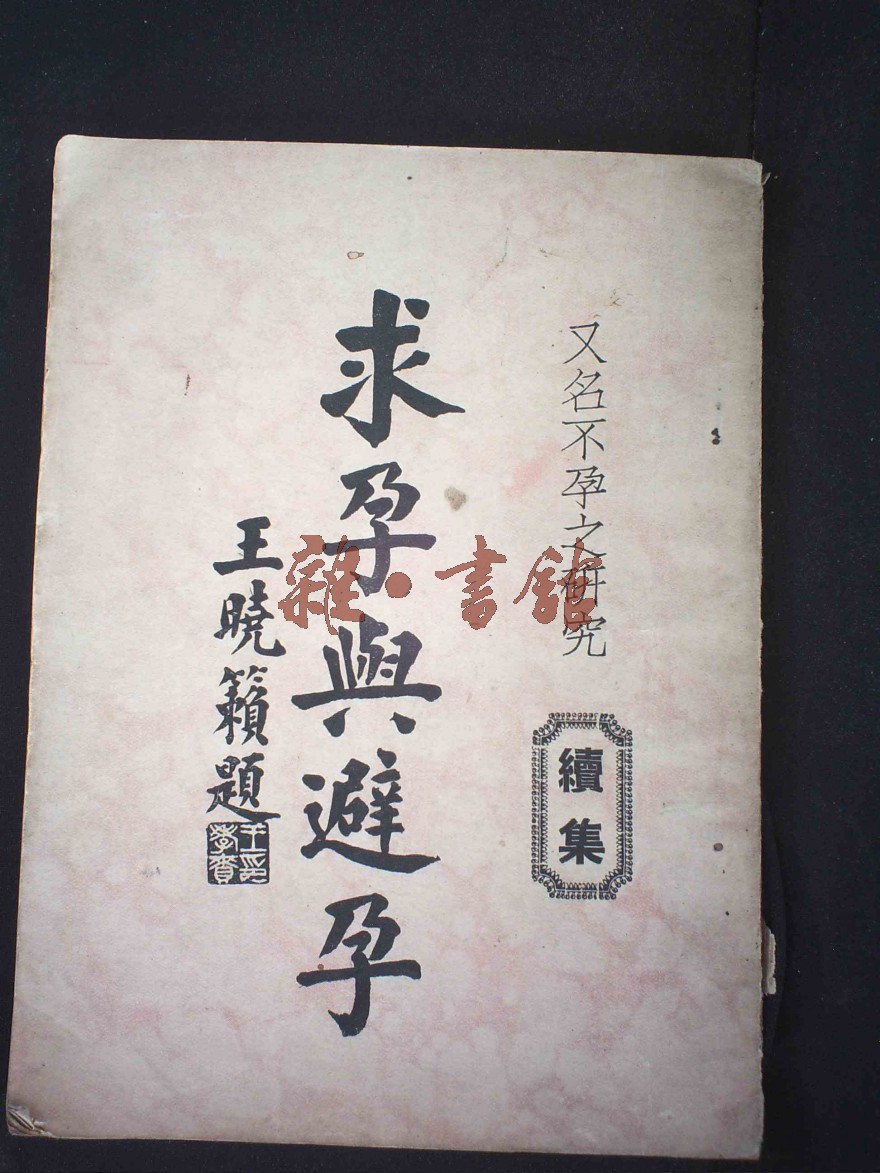 又名不孕之研究
續集
求孕與避孕
王曉籟題
王印孝賚
雜·書館